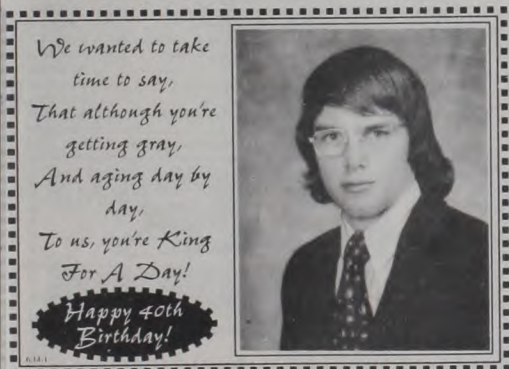 We wanted to take
time to say,
That although you're
getting gray,
And aging day by
day,
To us, you're King
For A Day!
Happy 40th
Birthday!